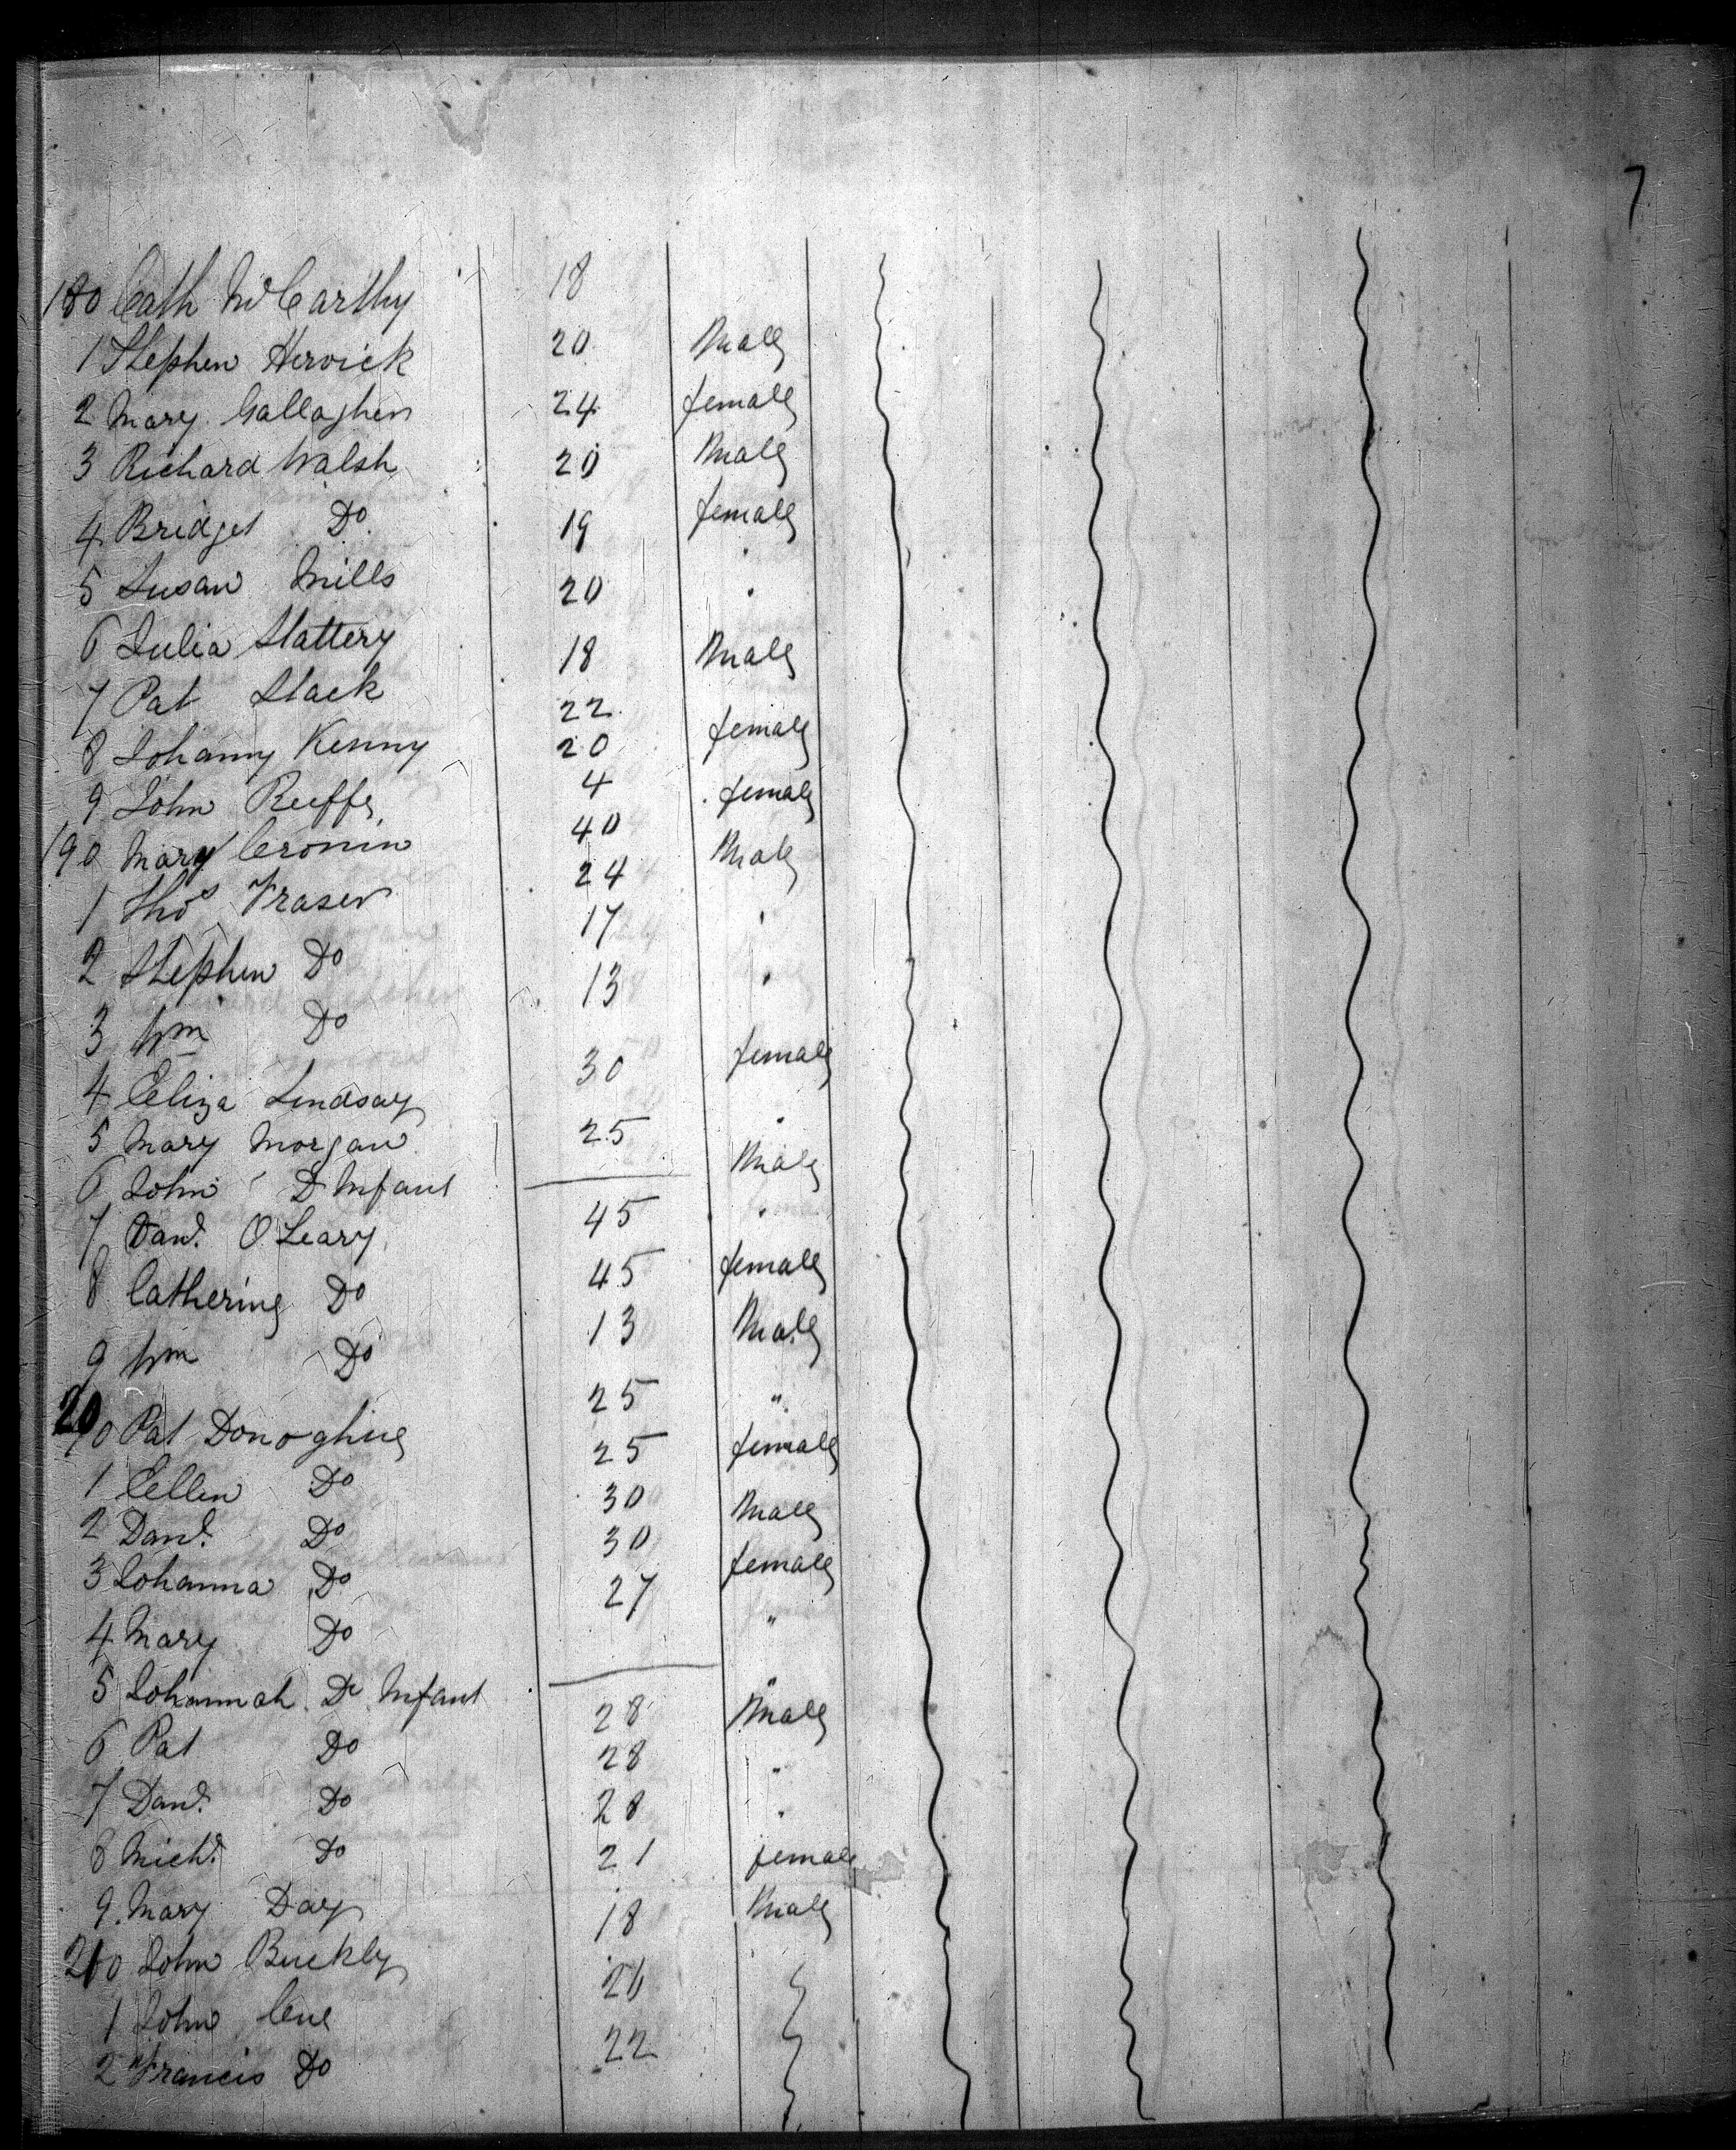 7
180 Cath McCarthy 18
1 Stephen Hervick 20 Male
2 Mary Gallagher 24 female
3 Richard Walsh 20 Male
4 Bridget Do 19 female
5 Susan Mills 20 "
6 Julia Slattery 18
7 Pat Slack 22 Male
8 Johanny Kenny 20 female
9 John 4
190 Mary Cronin 40 female
1 Thos Fraser 24 Male
2 Stephen Do 17 "
3 Wm Do 13 "
4 Eliza Lindsay 30 female
5 Mary Morgan 25 "
6 John Do Infant Male
7 Danl. O'Leary 45 "
8 Catherine Do 45 female
9 Wm Do 13 Male
200 Pat Donoghue 25 "
1 Ellen Do 25 female
2 Danl. Do 30 Male
3 Johanna Do 30 female
4 Mary Do 27 "
5 Johannah Do Infant "
6 Pat Do 28 Male
7 Danl. Do 28 "
8 Michl. Do 28 "
9 Mary Day 21 female
210 John Buckly 18 Male
1 John 20
2 Francis Do 22